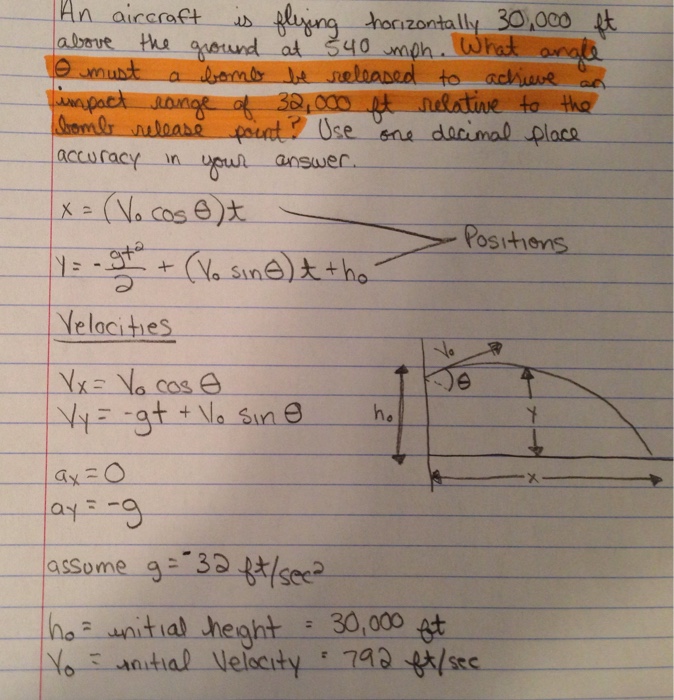 An aircraft is flying horizontally 30,000 ft
above the ground at 540 mph. What angle
θ must a bomb be released to achieve an
impact range of 32,000 ft relative to the
bomb release point? Use one decimal place
accuracy in your answer.
x = (V₀ cos θ)t
Positions
y = - gt²/2 + (V₀ sinθ)t + h₀
Velocities
Vx = V₀ cos θ
Vy = -gt + V₀ sin θ
V₀
θ
h₀
y
x
ax = 0
ay = -g
assume g = -32 ft/sec²
h₀ = initial height = 30,000 ft
V₀ = initial velocity = 792 ft/sec